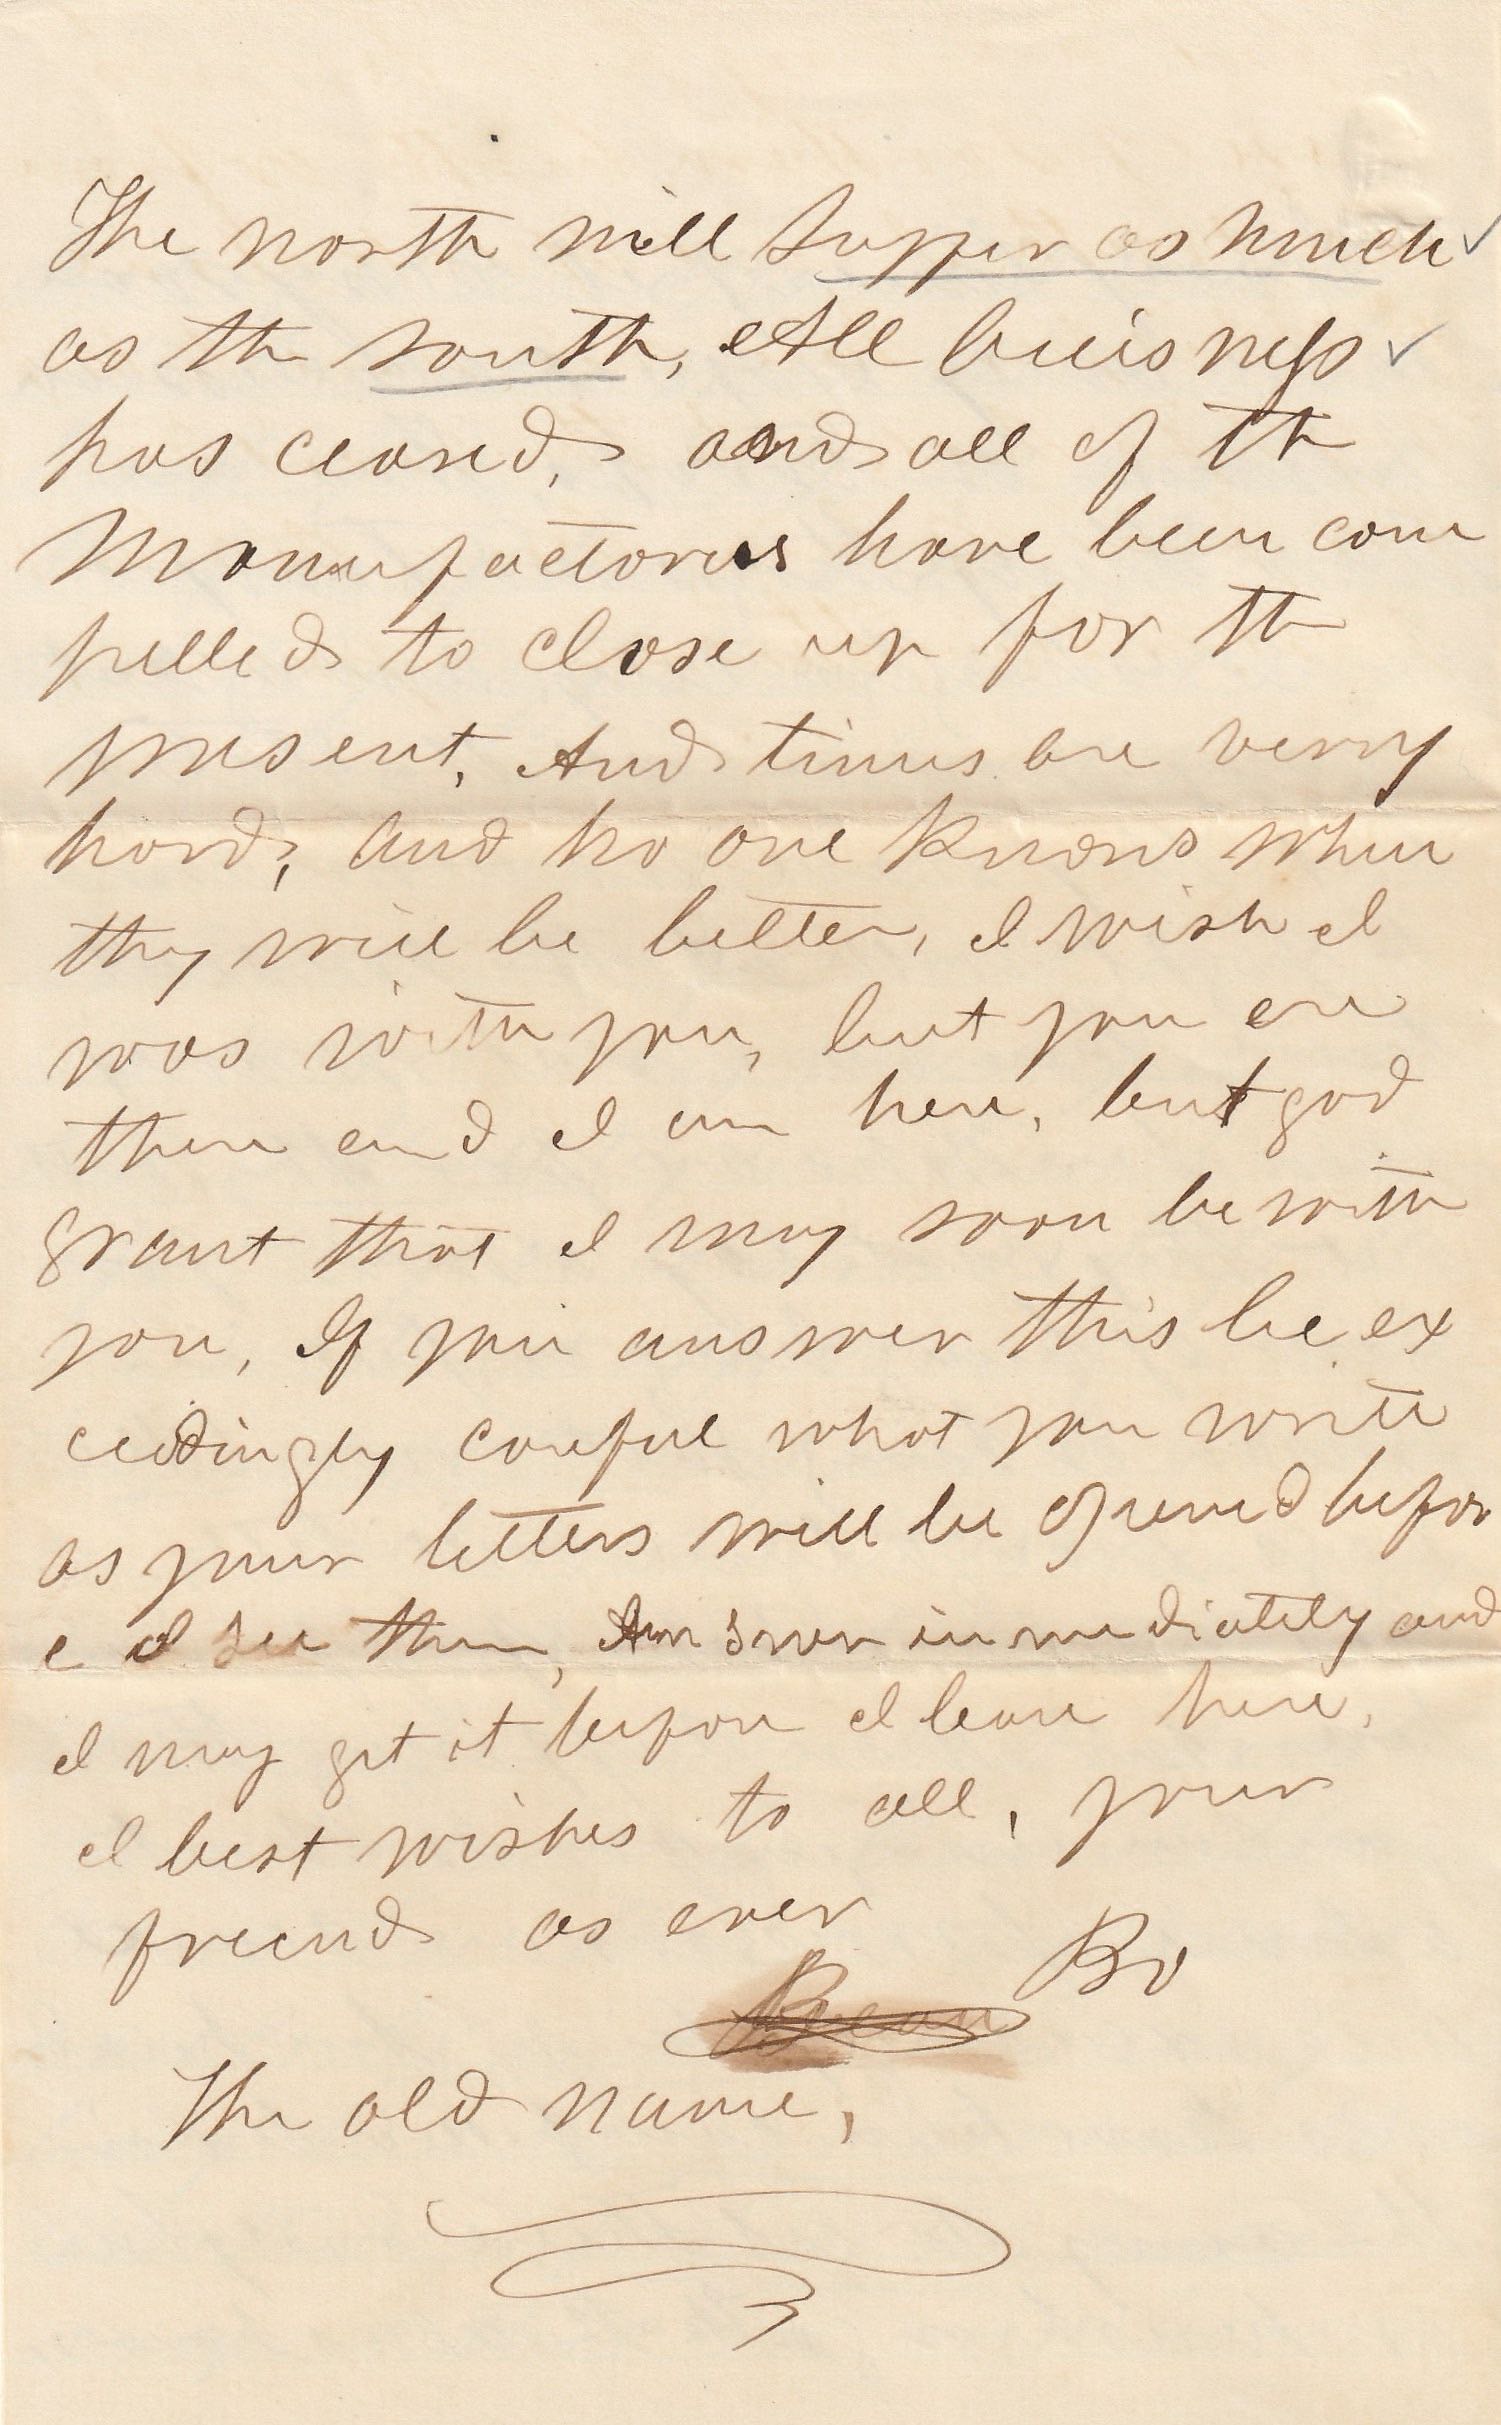 The north will suffer as much
as the south, All buisness
has ceased, and all of the
Manufactories have been com
pelled to close up for the
present, And times are verry
hard, and no one knows when
they will be better, I wish I
was with you, but you are
there and I am here, but god
grant that I may soon be with
you, If you answer this be ex
ceedingly careful what you write
as your letters will be opened befor
e I see them, Answer immediately and
I may get it before I leave here,
I best wishes to all, your
freind as ever
Bo
The old name,